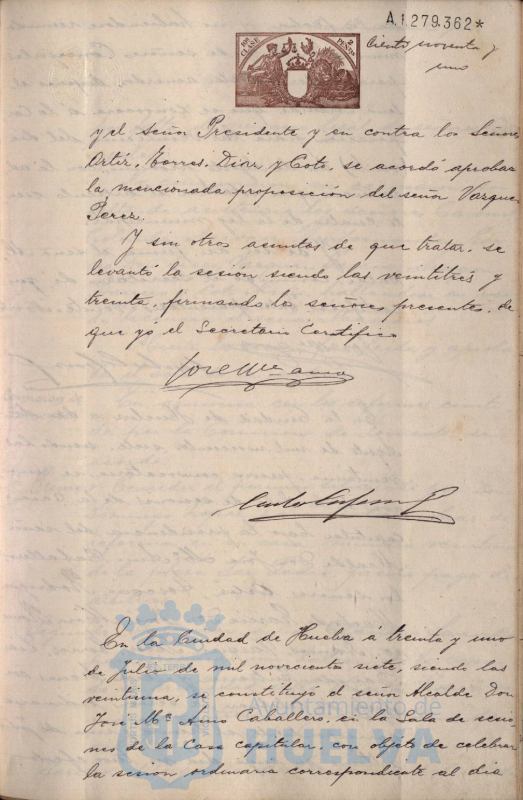 A.1.279.362*
10ª CLASE
2 PESETAS
Ciento noventa y
uno
y el señor Presidente y en contra los Señores
Ortiz, Torres, Diaz y Coto, se acordó aprobar
la mencionada proposición del señor Vazquez
Pérez.
Y sin otros asuntos de que tratar, se
levantó la sesión siendo las veintitrés y
treinta, firmando lo señores presentes, de
que yó el Secretario Certifico
José Mª Amo
En la Ciudad de Huelva á treinta y uno
de Julio de mil novecientos siete, siendo las
veintiuna, se constituyó el señor Alcalde Don
José Mª Amo Caballero, en la Sala de sesio-
nes de la Casa capitular, con objeto de celebrar
la sesión ordinaria correspondiente al dia
Ayuntamiento de
HUELVA